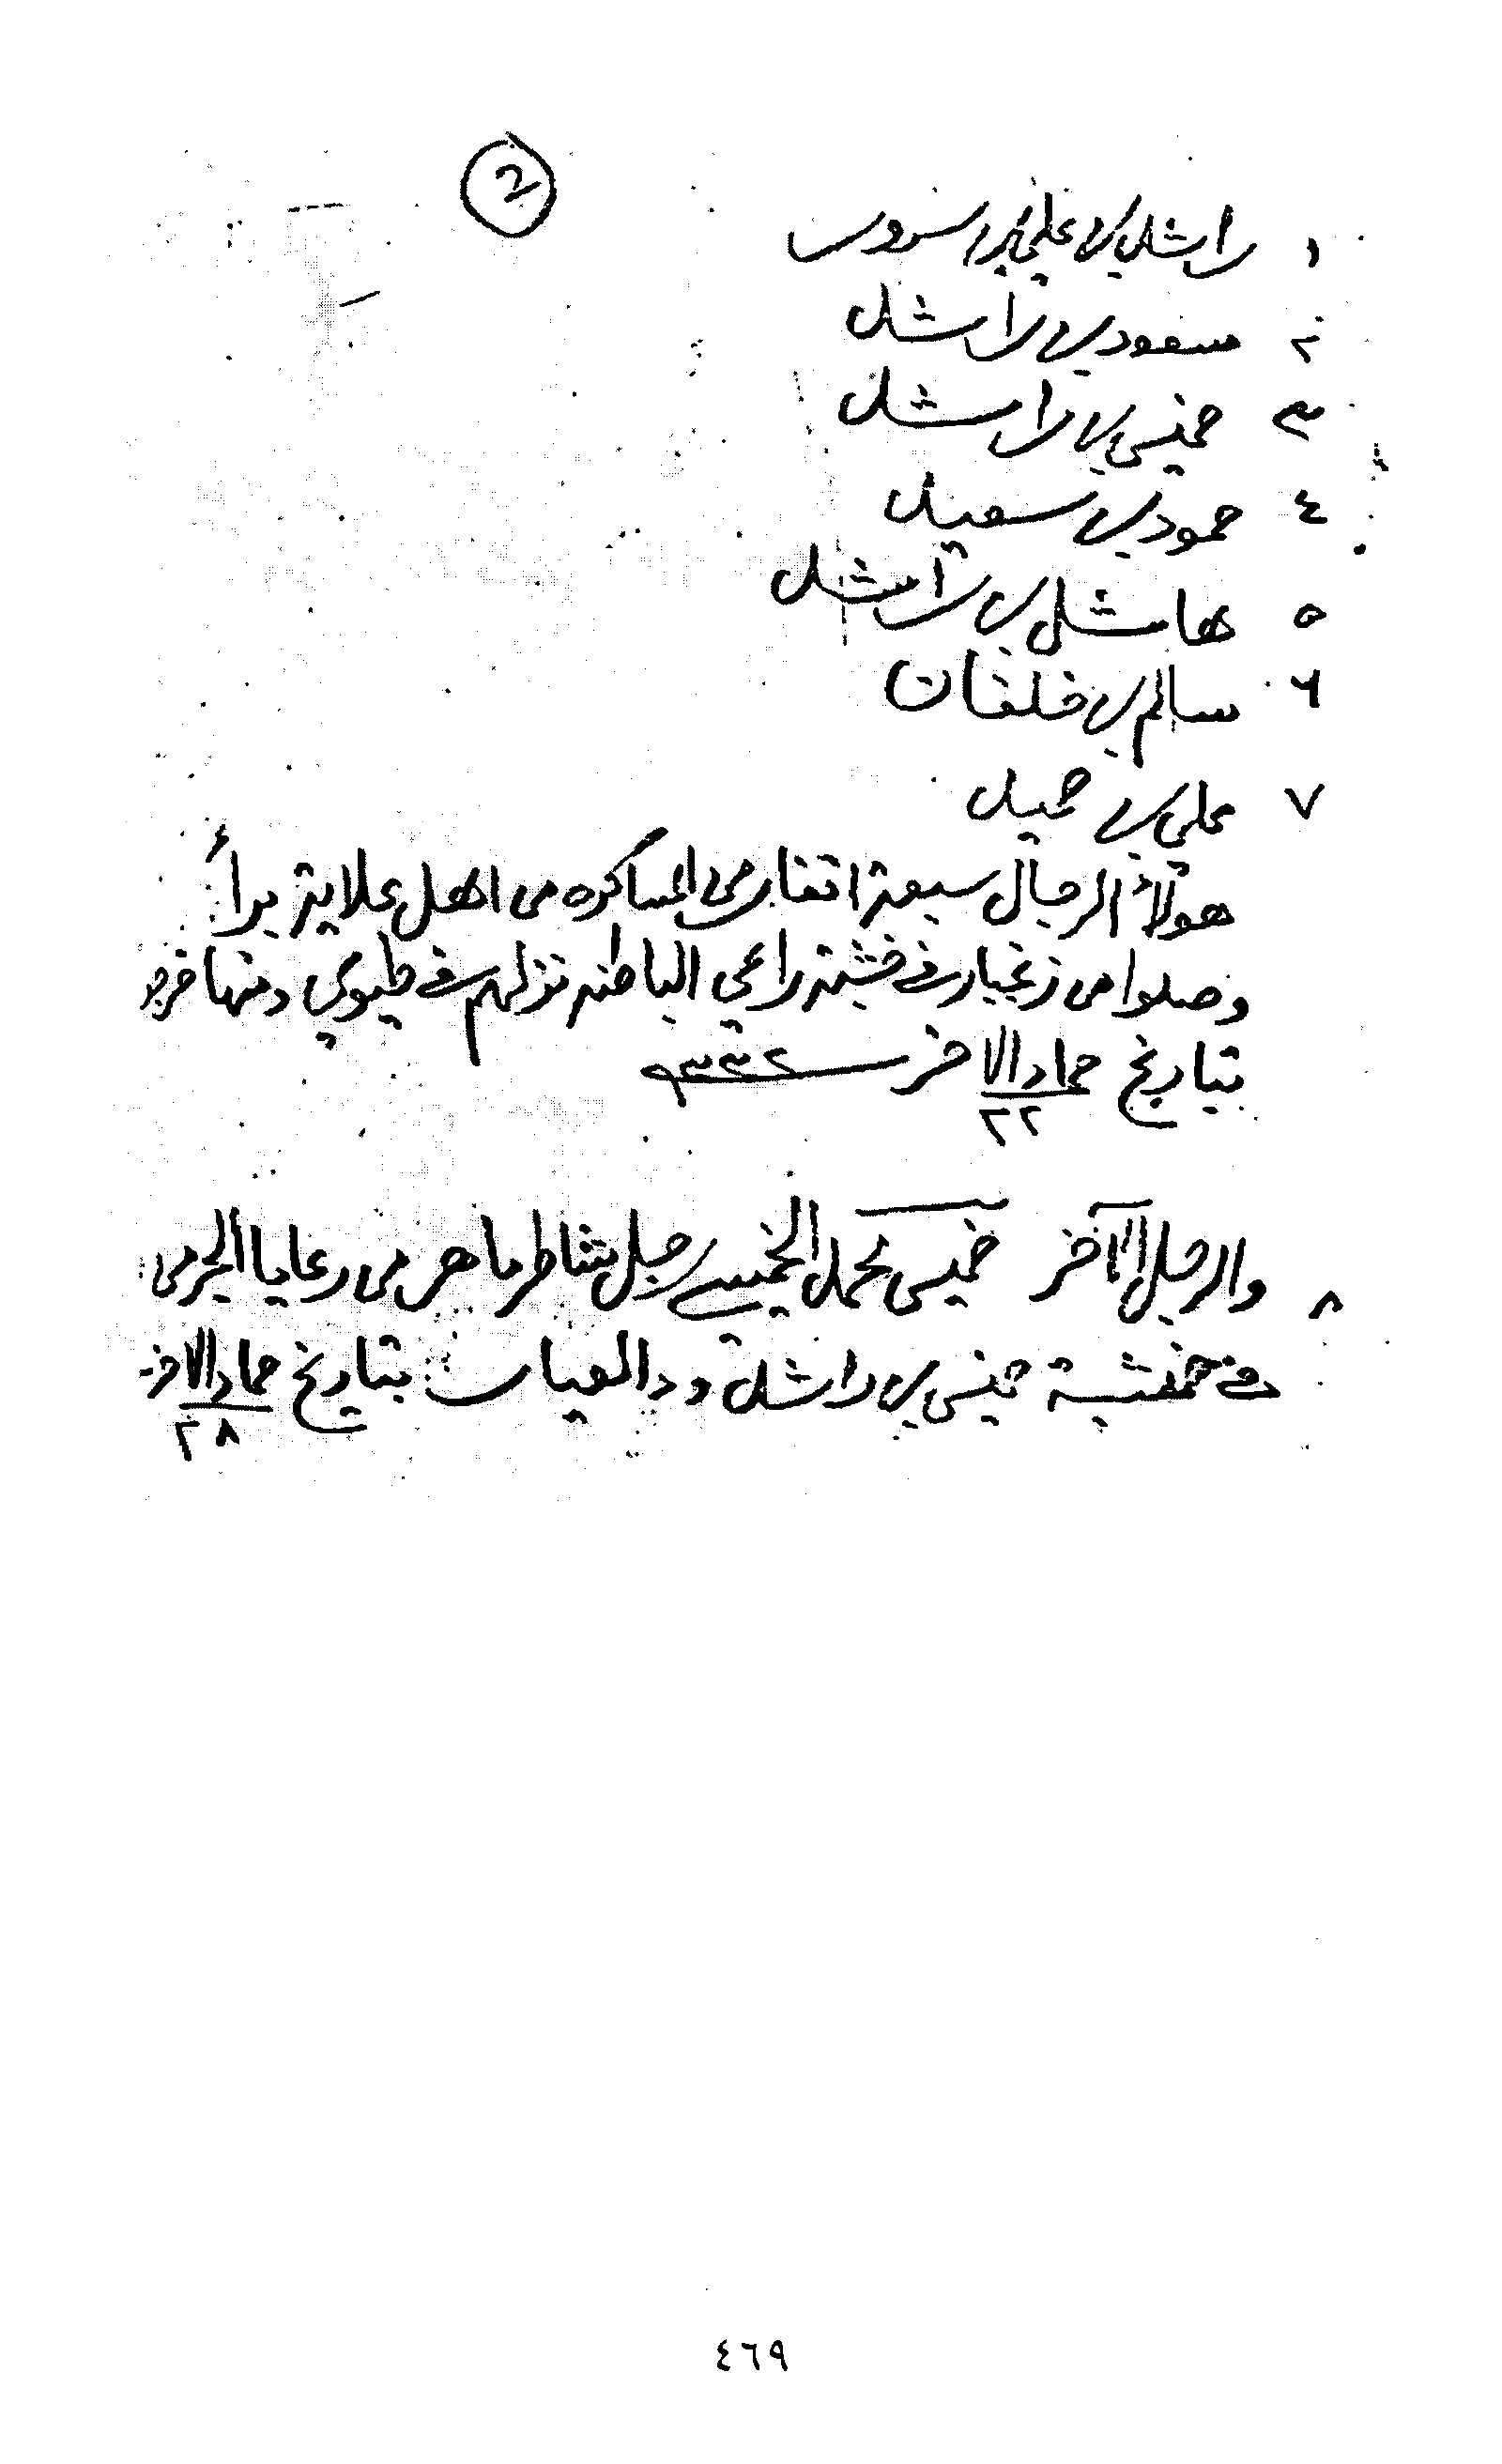 2
١ راشد بن علي بن سرور
٢ مسعود بن راشد
٣ خميس بن راشد
٤ حمود بن سعيد
٥ هاشل بن راشد
٦ سالم بن خلفان
٧ علي بن حميد
هولاء الرجال سبعة انفار من العساكره من اهل علاية برأ
وصلوا من زنجبار في خشبة راعي الباطنه نزلهم في طيوي ومنها خرجو
بتاريخ جماد الاخر ٩٣٣٢
٢٢
٨ والرجل الآخر خميس محمد الخميسي رجل شاطر ماهر من رعايا الجرمن
في خشبة خميس بن راشد ود العيات بتاريخ جماد الاخر
٢٨
٤٦٩